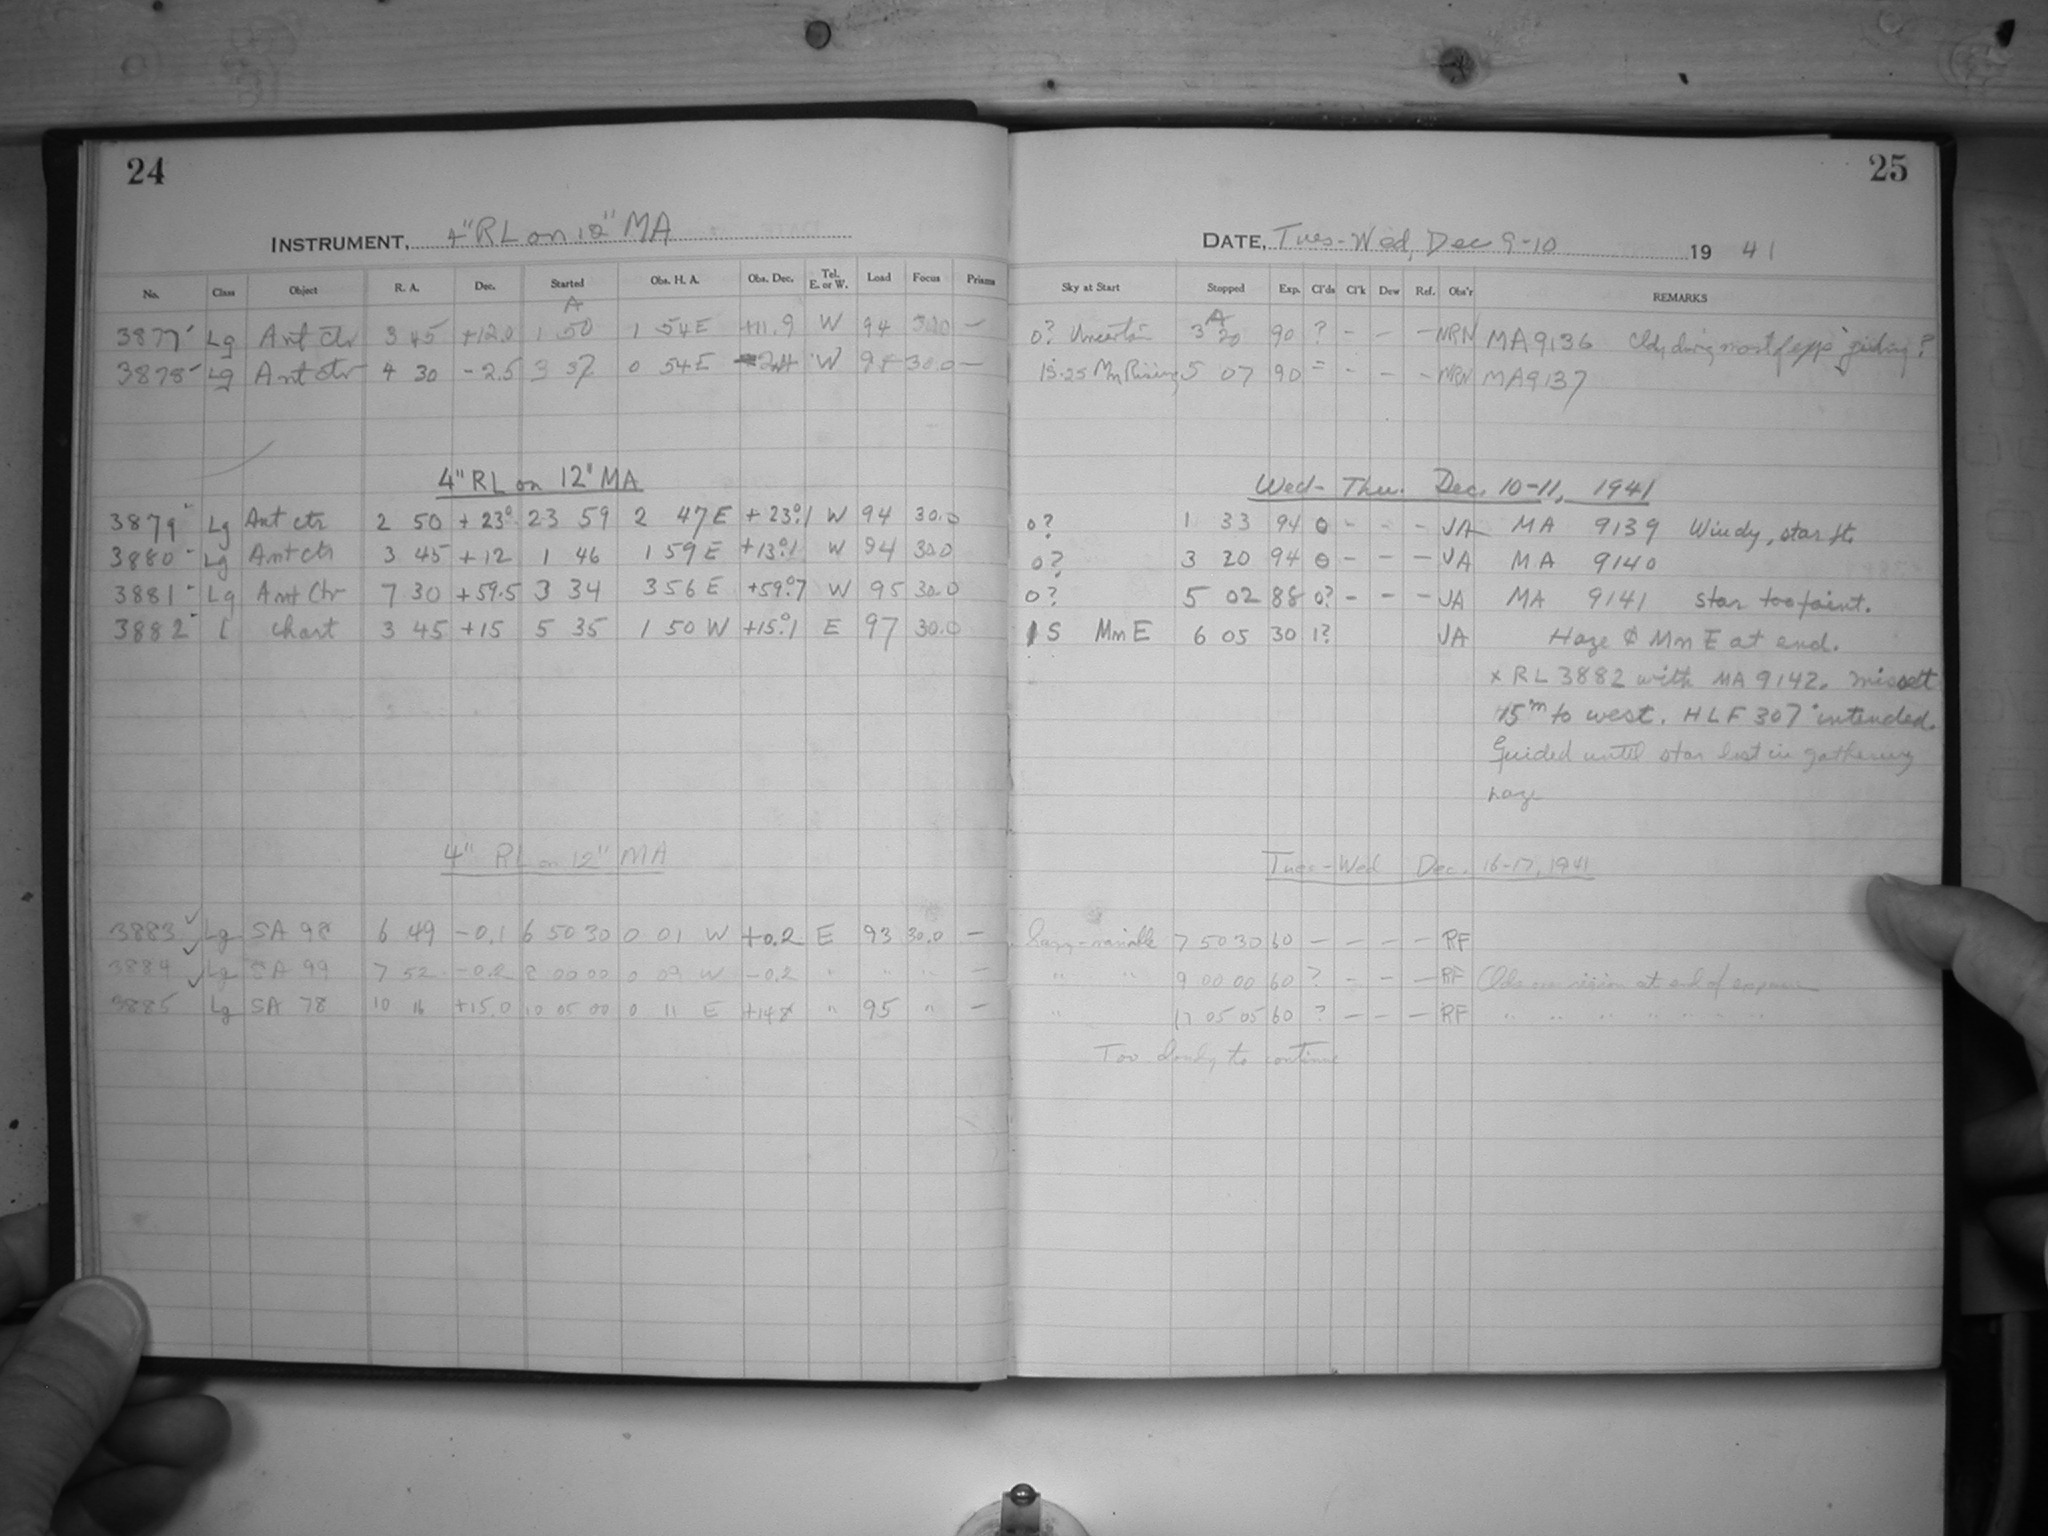 24
INSTRUMENT, 4" RL on 12" MA
No. Class Object R. A. Dec. Started Obs. H. A. Obs. Dec. Tel. E. or W. Load Focus Prisms
A
3877 Lg Ant Ctr 3 45 +12.0 1 50 1 54 E +11.9 W 94 —
3878 Lg Ant Ctr 4 30 -2.5 3 37 0 54 E W 94 30.0 —
4" RL on 12" MA
3879 Lg Ant ctr 2 50 +23° 23 59 2 47 E +23°.1 W 94 30.0
3880 Lg Ant Ctr 3 45 +12 1 46 1 59 E +13°.1 W 94 30.0
3881 Lg Ant Ctr 7 30 +59.5 3 34 3 56 E +59°.7 W 95 30.0
3882 C chart 3 45 +15 5 35 1 50 W +15°.1 E 97 30.0
4" RL on 12" MA
3883 Lg SA 98 6 49 -0.1 6 50 30 0 01 W +0.2 E 93 30.0 —
3884 Lg SA 99 7 52 -0.2 8 00 00 0 09 W -0.2 " " " —
3885 Lg SA 78 10 16 +15.0 10 05 00 0 11 E +14.8 " 95 " —
25
DATE, Tues-Wed, Dec 9-10 1941
Sky at Start Stopped Exp. Cl'ds Cl'k Dew Ref. Obs'r REMARKS
A
0? Uncertain 3 20 90 ? - - - NRN MA9136 Cldy during most of exp guiding?
Mn Rising 5 07 90 = - - - NRN MA9137
Wed- Thu. Dec. 10-11, 1941
0? 1 33 94 0 - - - JA MA 9139 Windy, star ft.
0? 3 20 94 0 - - - JA MA 9140
0? 5 02 88 0? - - - JA MA 9141 star too faint.
1S Mn E 6 05 30 1? JA Haze & Mn E at end.
x RL 3882 with MA 9142. missett
45m to west. HLF 307 intended.
Guided until star lost in gathering
haze
Tues-Wed Dec. 16-17, 1941
hazy-variable 7 50 30 60 — — — — RF
" " 9 00 00 60 ? - - — RF at end of exposure
" 11 05 05 60 ? — — — RF " " " " " " "
Too cloudy to continue